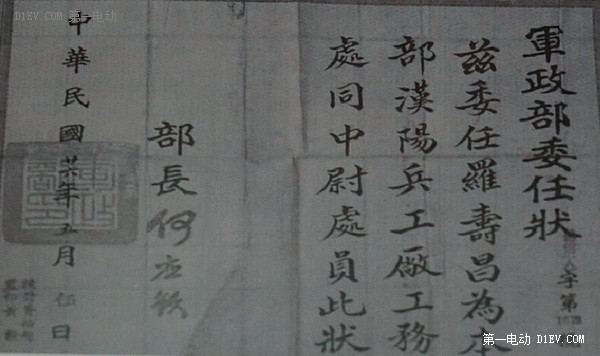 D1EV.COM 第一电动
軍政部委任狀
字第
茲委任羅壽昌為本
部漢陽兵工廠工務
處同中尉處員此狀
部長何應欽
中華民國廿六年五月伍日
第一电动 D1EV.COM